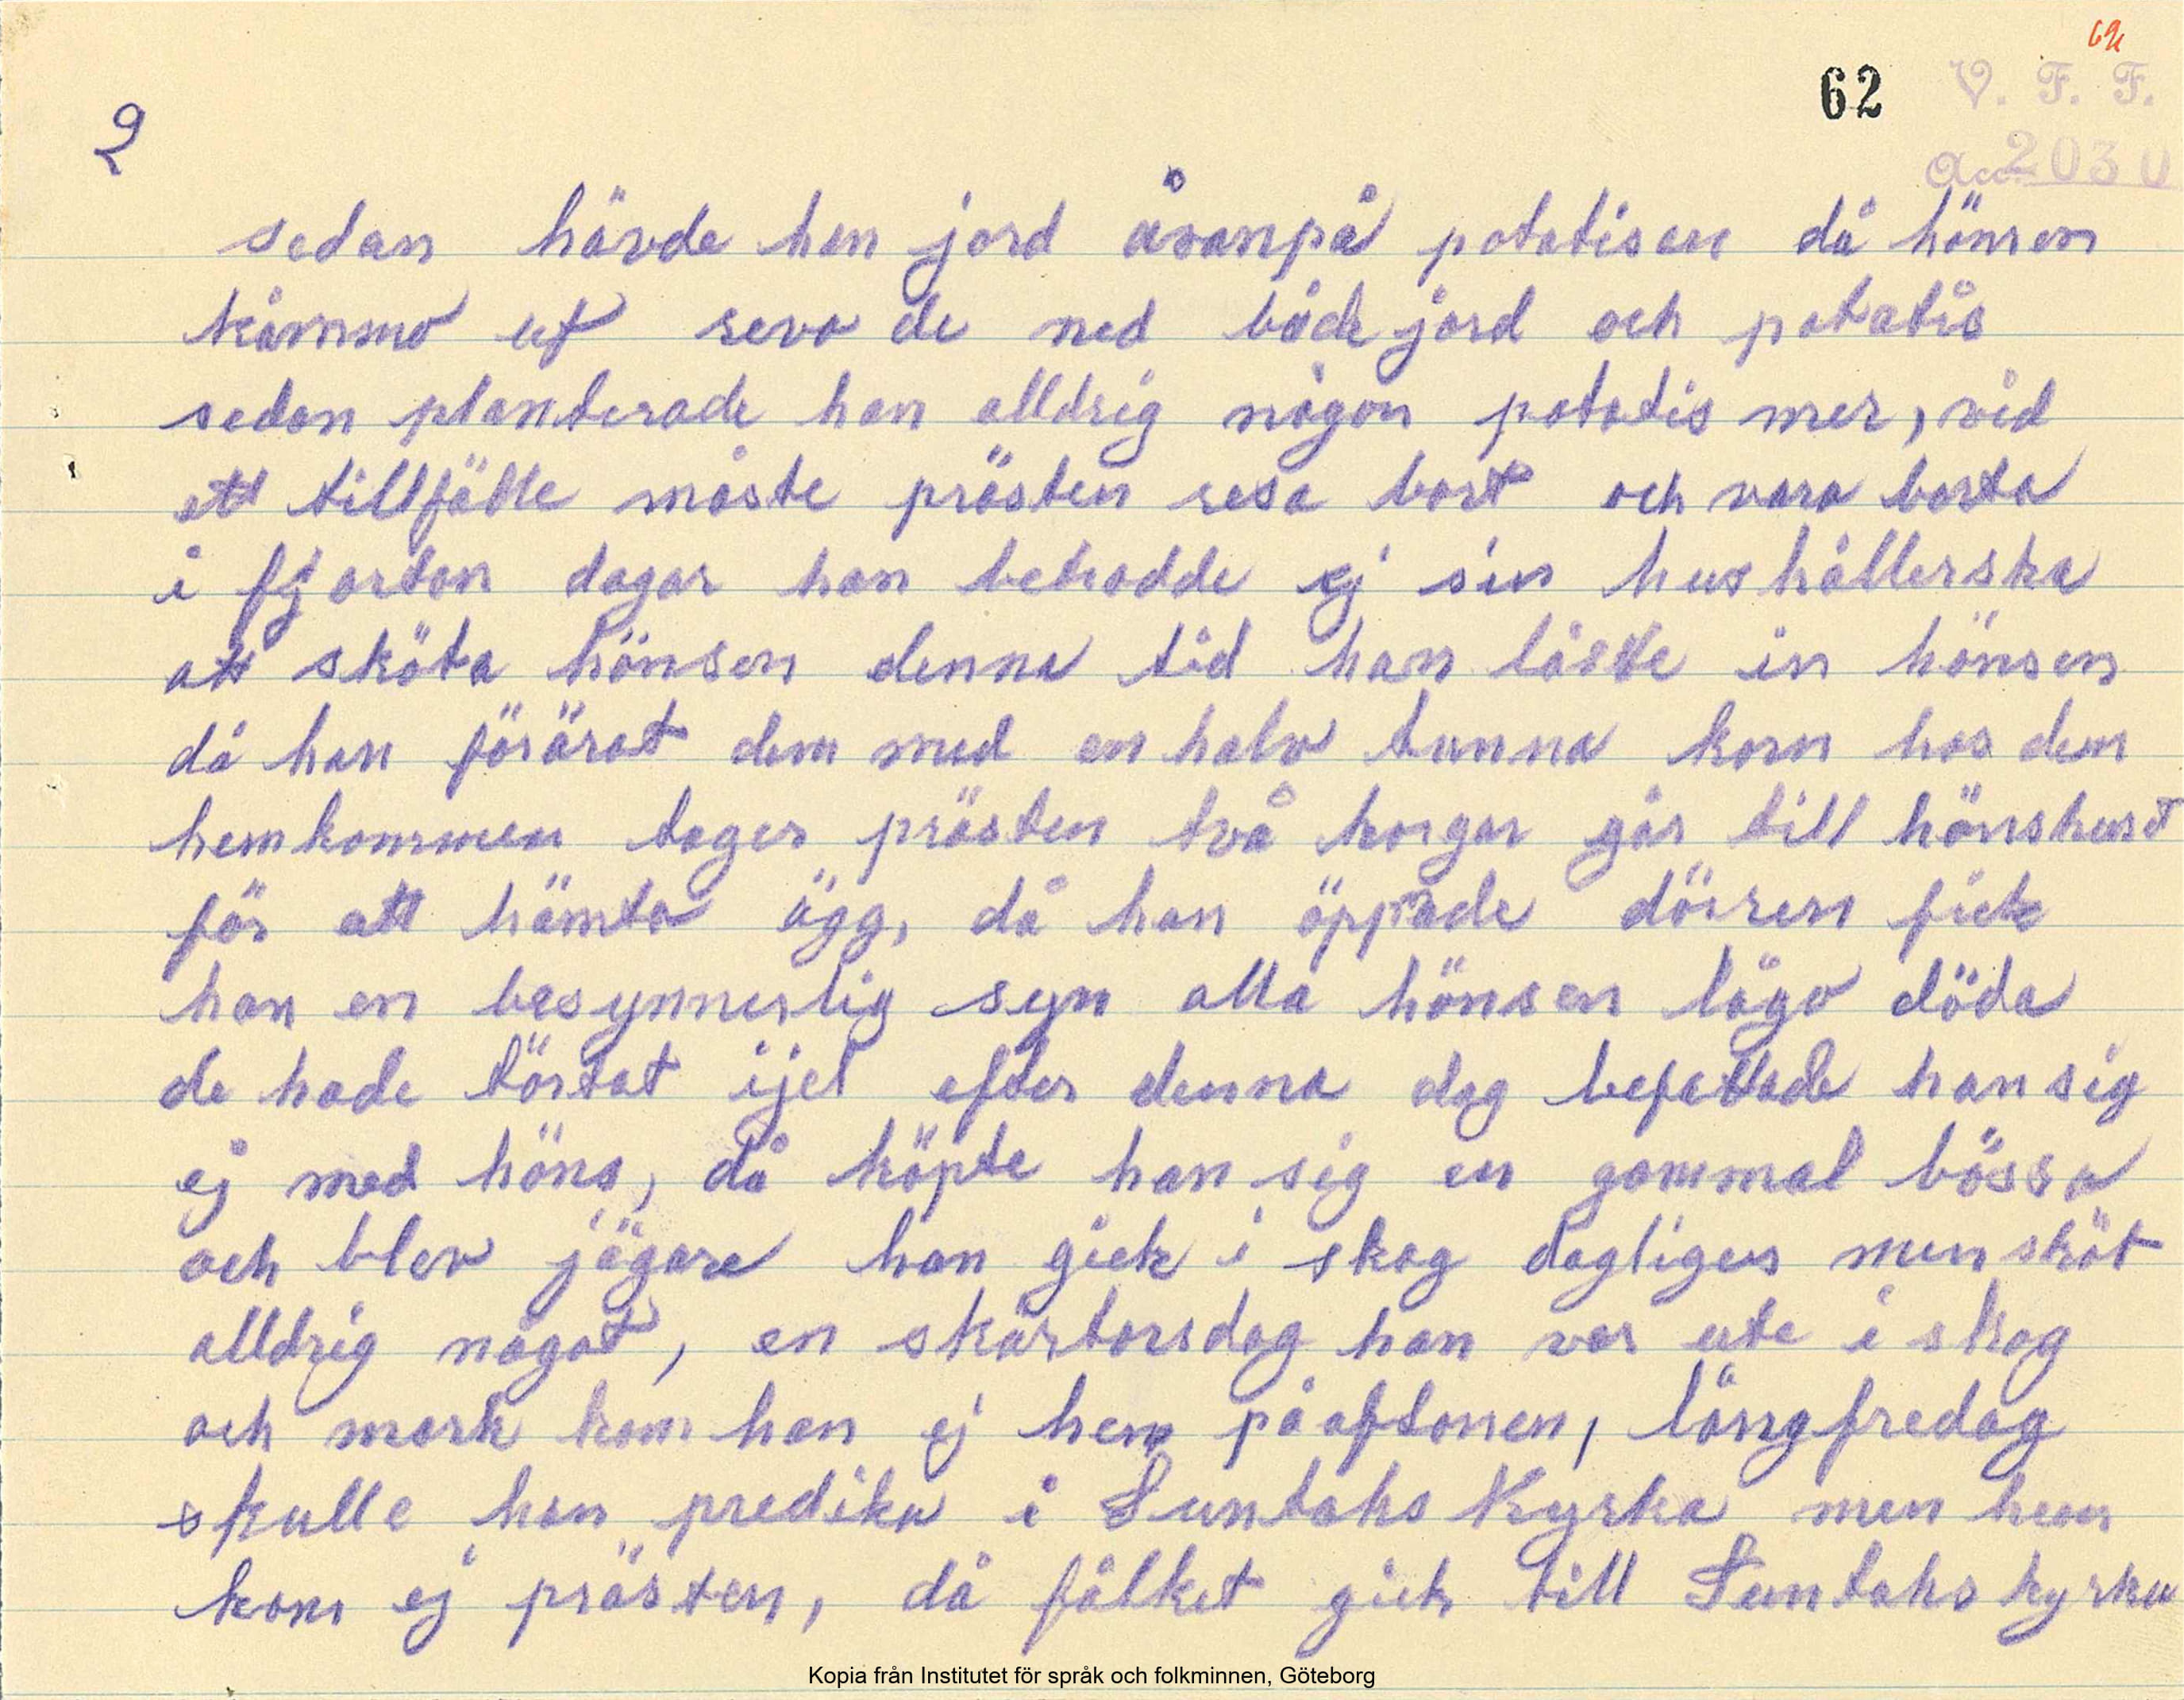 62
62
V. F. F.
Acc. 2030
2
sedan hävde han jord åvanpå potatisen då hönsen
kåmmo ut revo de ned både jord och potatis
sedan planterade han alldrig någon potatis mer, vid
ett tillfälle måste prästen resa bort och vara borta
i fjorton dagar han betrodde ej sin hushållerska
att sköta hönsen denna tid han låste in hönsen
då han förärat dem med en halv tunna korn hos dem
hemkommen tager prästen två korgar går till hönshust
för att hämta ägg, då han öppnade dörren fick
han en besynnerlig syn alla hönsen lågo döda
de hade törstat ijel efter denna dag befattade han sig
ej med höns, då köpte han sig en gammal bössa
och blev jägare han gick i skog dagligen men sköt
alldrig något, en skärtorsdag han var ute i skog
och mark kom han ej hem på aftonen, långfredag
skulle han predika i Suntaks Kyrka men hem
kom ej prästen, då fålket gick till Suntaks kyrka
Kopia från Institutet för språk och folkminnen, Göteborg